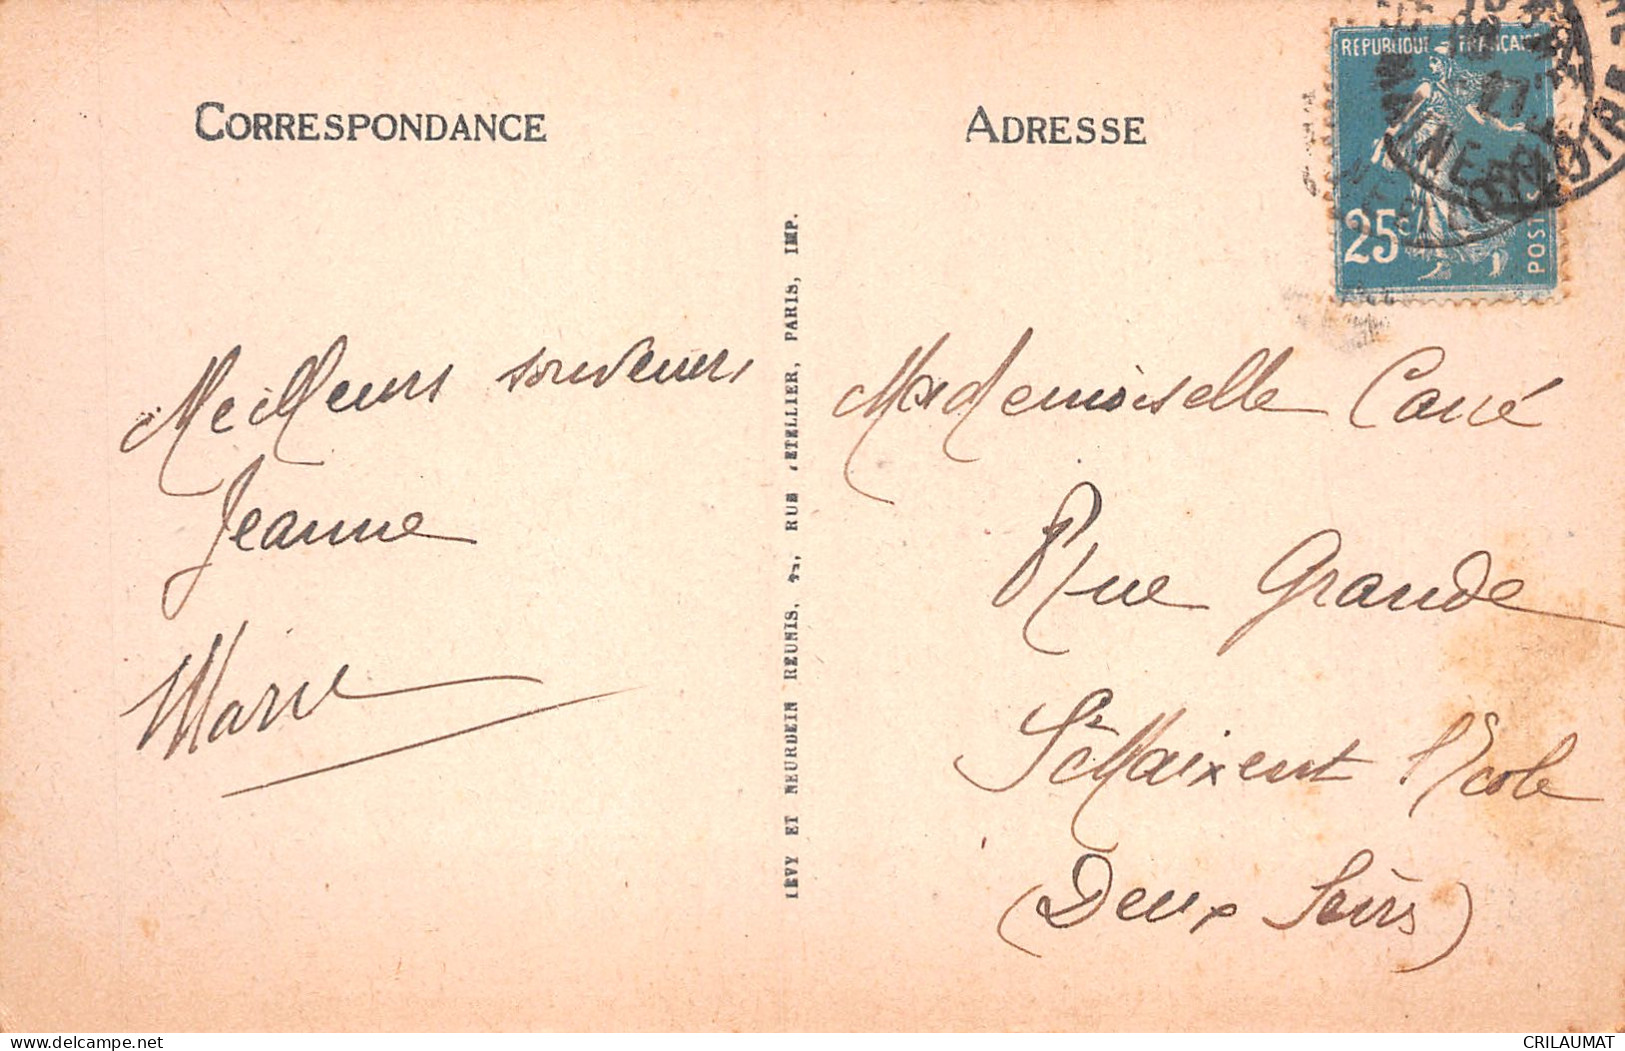 CORRESPONDANCE
Meilleurs souvenirs
Jeanne
Marie
LÉVY ET NEURDEIN RÉUNIS, RUE LETELLIER, PARIS, IMP.
ADRESSE
RÉPUBLIQUE FRANÇAISE
25c
POSTES
MAINE-ET-LOIRE
27
Mademoiselle Carré
Rue Grande
St Maixent l'Ecole
(Deux Sèvres)
CRILAUMAT